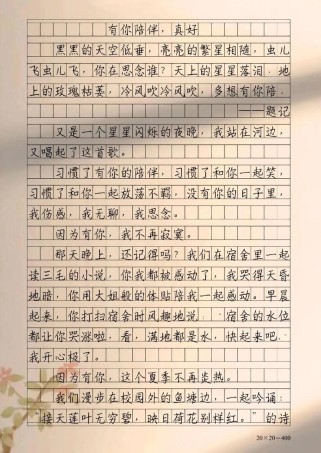 有你陪伴，真好
黑黑的天空低垂，亮亮的繁星相随，虫儿
飞虫儿飞，你在思念谁？天上的星星落泪，地
上的玫瑰枯萎，冷风吹冷风吹，多想有你陪。
——题记
又是一个星星闪烁的夜晚，我站在河边，
又唱起了这首歌。
习惯了有你的陪伴，习惯了和你一起笑，
习惯了和你一起放荡不羁，没有你的日子里，
我伤感，我无聊，我思念。
因为有你，我不再寂寞。
那天晚上，还记得吗？我们在宿舍里一起
读三毛的小说，你我都被感动了，我哭得天昏
地暗，你用大姐般的体贴陪我一起感动。早晨
起来，你打扫宿舍时风趣地说：宿舍的水位
都让你哭涨啦，看，满地都是水，快起来吧.
我开心极了。
因为有你，这个夏季不再炎热。
我们漫步在校园外的鱼塘边，一起吟诵：
“接天莲叶无穷碧，映日荷花别样红。”的诗
20×20=400